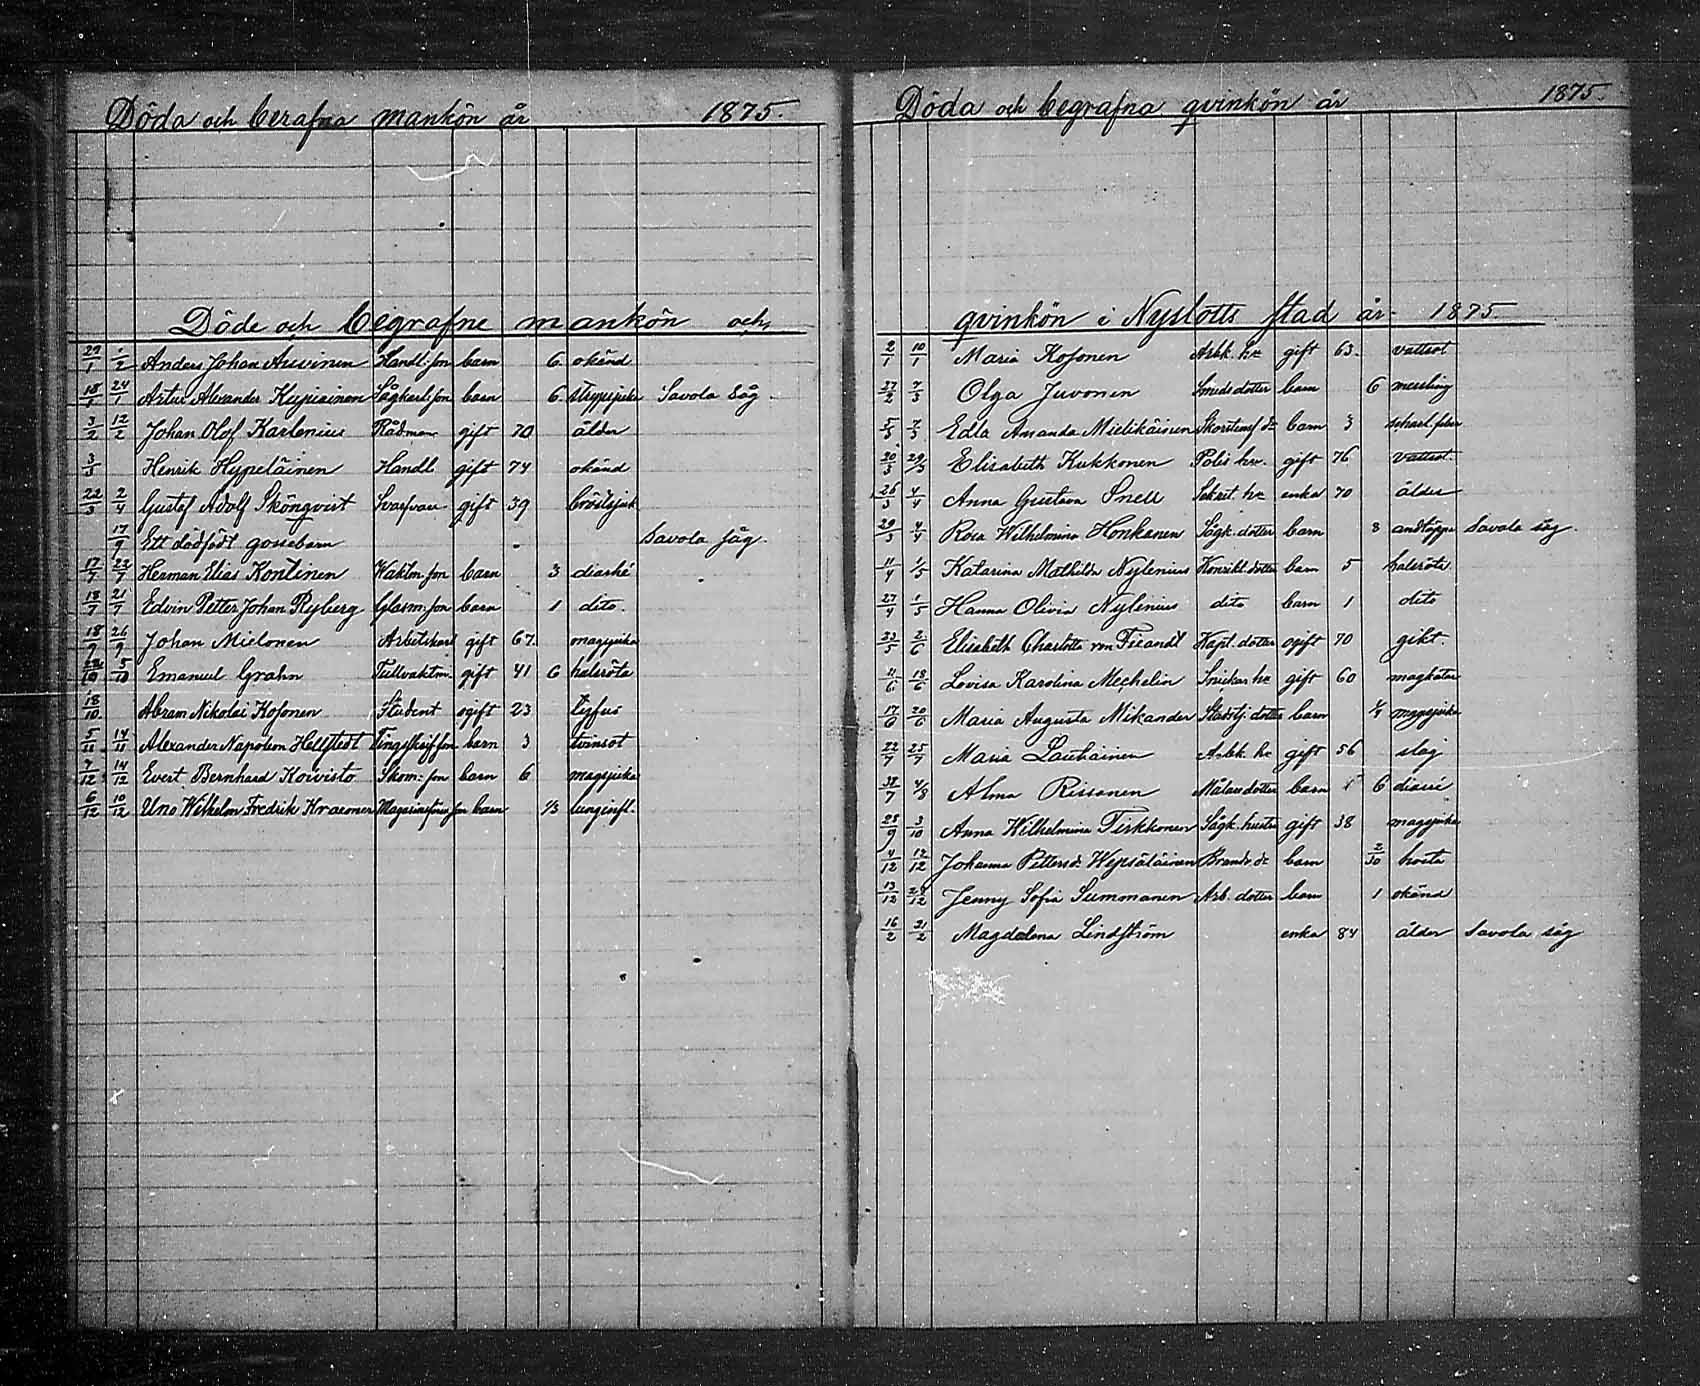 Döda och berafna mankön år 1875.
Döde och begrafne mankön och
29/1 1/2 Anders Johan Auvinen Handl. son barn 6. okänd
18/1 24/1 Artur Alexander Kupiainen Sågkarls son barn 6. strypsjuka Savola Såg.
3/2 12/2 Johan Olof Karlenius Rådman gift 70 ålder
3/3 Henrik Hyпeläinen Handl. gift 74 okänd
22/3 2/4 Gustaf Adolf Skönqvist Svarfvare gift 39 bröstsjuk
17/9 Ett dödfödt gossebarn Savola såg.
17/7 22/7 Herman Elias Kontinen Waktm. son barn 3 diarhé
18/7 21/7 Edvin Petter Johan Ryberg Glasm. son barn 1 dito.
18/9 26/9 Johan Mielonen Arbetskarl gift 67. magsjuka
5/10 Emanuel Grahn Tullvaktm. gift 41 6 halsröta
18/10 Abram Nikolai Kosonen Student ogift 23 tyfus
5/11 14/11 Alexander Napoleon Hellstedt Tingsskrif. son barn 3 tvinsot
7/12 14/12 Evert Bernhard Koivisto Skom. son barn 6 magsjuka
6/12 10/12 Uno Wilhelm Fredrik Kraemer son barn 1/3 lunginfl.
Döda och begrafna qvinkön år 1875.
qvinkön i Nyslotts stad år 1875.
2/1 10/1 Maria Kosonen Arbk. hu gift 63. vattsot
27/2 7/3 Olga Juvonen Smeds dotter barn 6 messling
5/3 7/3 Edla Amanda Mielikäinen Skorstensf. dr barn 3 scharl. feber
20/3 29/3 Elisabeth Kukkonen Polis hu. gift 76 vattsot.
26/3 4/4 Anna Gustava Snell Sekret. hu enka 70 ålder
29/3 4/4 Rosa Wilhelmina Honkanen Sågk. dotter barn 8 andtäppa Savola såg.
11/4 1/5 Katarina Mathilda Nylenius dotter barn 5 halsröta
27/4 1/5 Hanna Olivia Nylenius dito barn 1 dito
23/5 2/6 Elisabeth Charlotta von Fieandt Kapt. dotter ogift 70 gikt.
11/6 18/6 Lovisa Karolina Mechelin Snickar hu gift 60 magkatar
17/6 20/6 Maria Augusta Mikander dotter barn magsjuka
22/7 25/7 Maria Lauhainen Arbk. hu gift 56 slag
4/8 Alma Rissanen Målare dotter barn 6 diarré
28/9 3/10 Anna Wilhelmina Tirkkonen Sågk. hustru gift 38 magsjuka
4/12 12/12 Johanna Pettersdr Wepsäläinen Brandv. dr barn 2/30 hosta
13/12 Jenny Sofia Summanen Arb. dotter barn 1 okänd
16/2 21/2 Magdalena Lindström enka 84 ålder Savola såg